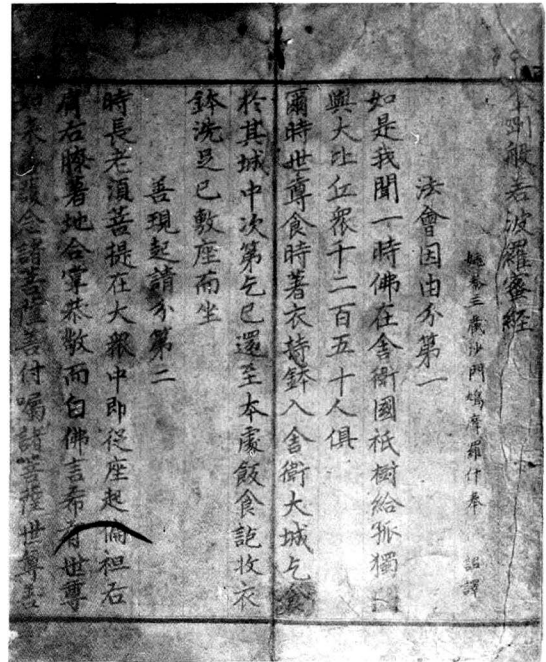 剛般若波羅蜜經
姚秦三藏沙門鳩摩羅什奉　詔譯
法會因由分第一
如是我聞一時佛在舍衛國祇樹給孤獨
與大比丘衆千二百五十人俱
爾時世尊食時著衣持鉢入舍衛大城乞食
於其城中次第乞已還至本處飯食訖收衣
鉢洗足已敷座而坐
善現起請分第二
時長老湏菩提在大衆中即從座起偏袒右
肩右膝著地合掌恭敬而白佛言希有世尊
如來善護念諸菩薩善付囑諸菩薩世尊善